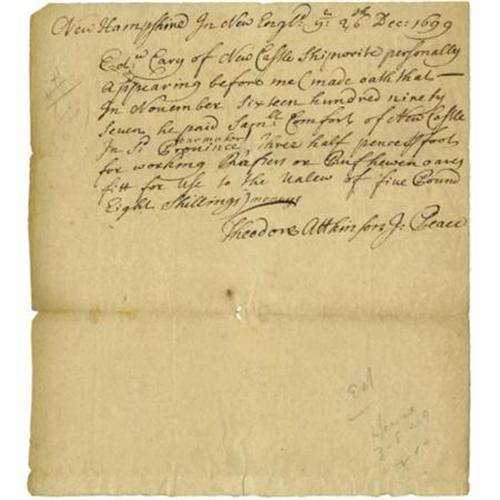 New Hampshire In New Engld ye 26th Dec: 1699
Edwd Cary of New Castle Shipwrite personally
Appearing before me (made oath that —
In November Sixteen hundred ninety
Seven he paid Samll Comfort of New Castle
oar maker
In sd Province, Three half pence foot
for working Rafters or Ruff hewen oares
fitt for use to the Valew of five Pound
Eight Shillings) money
Theodore Attkinson Js Peace
Ed